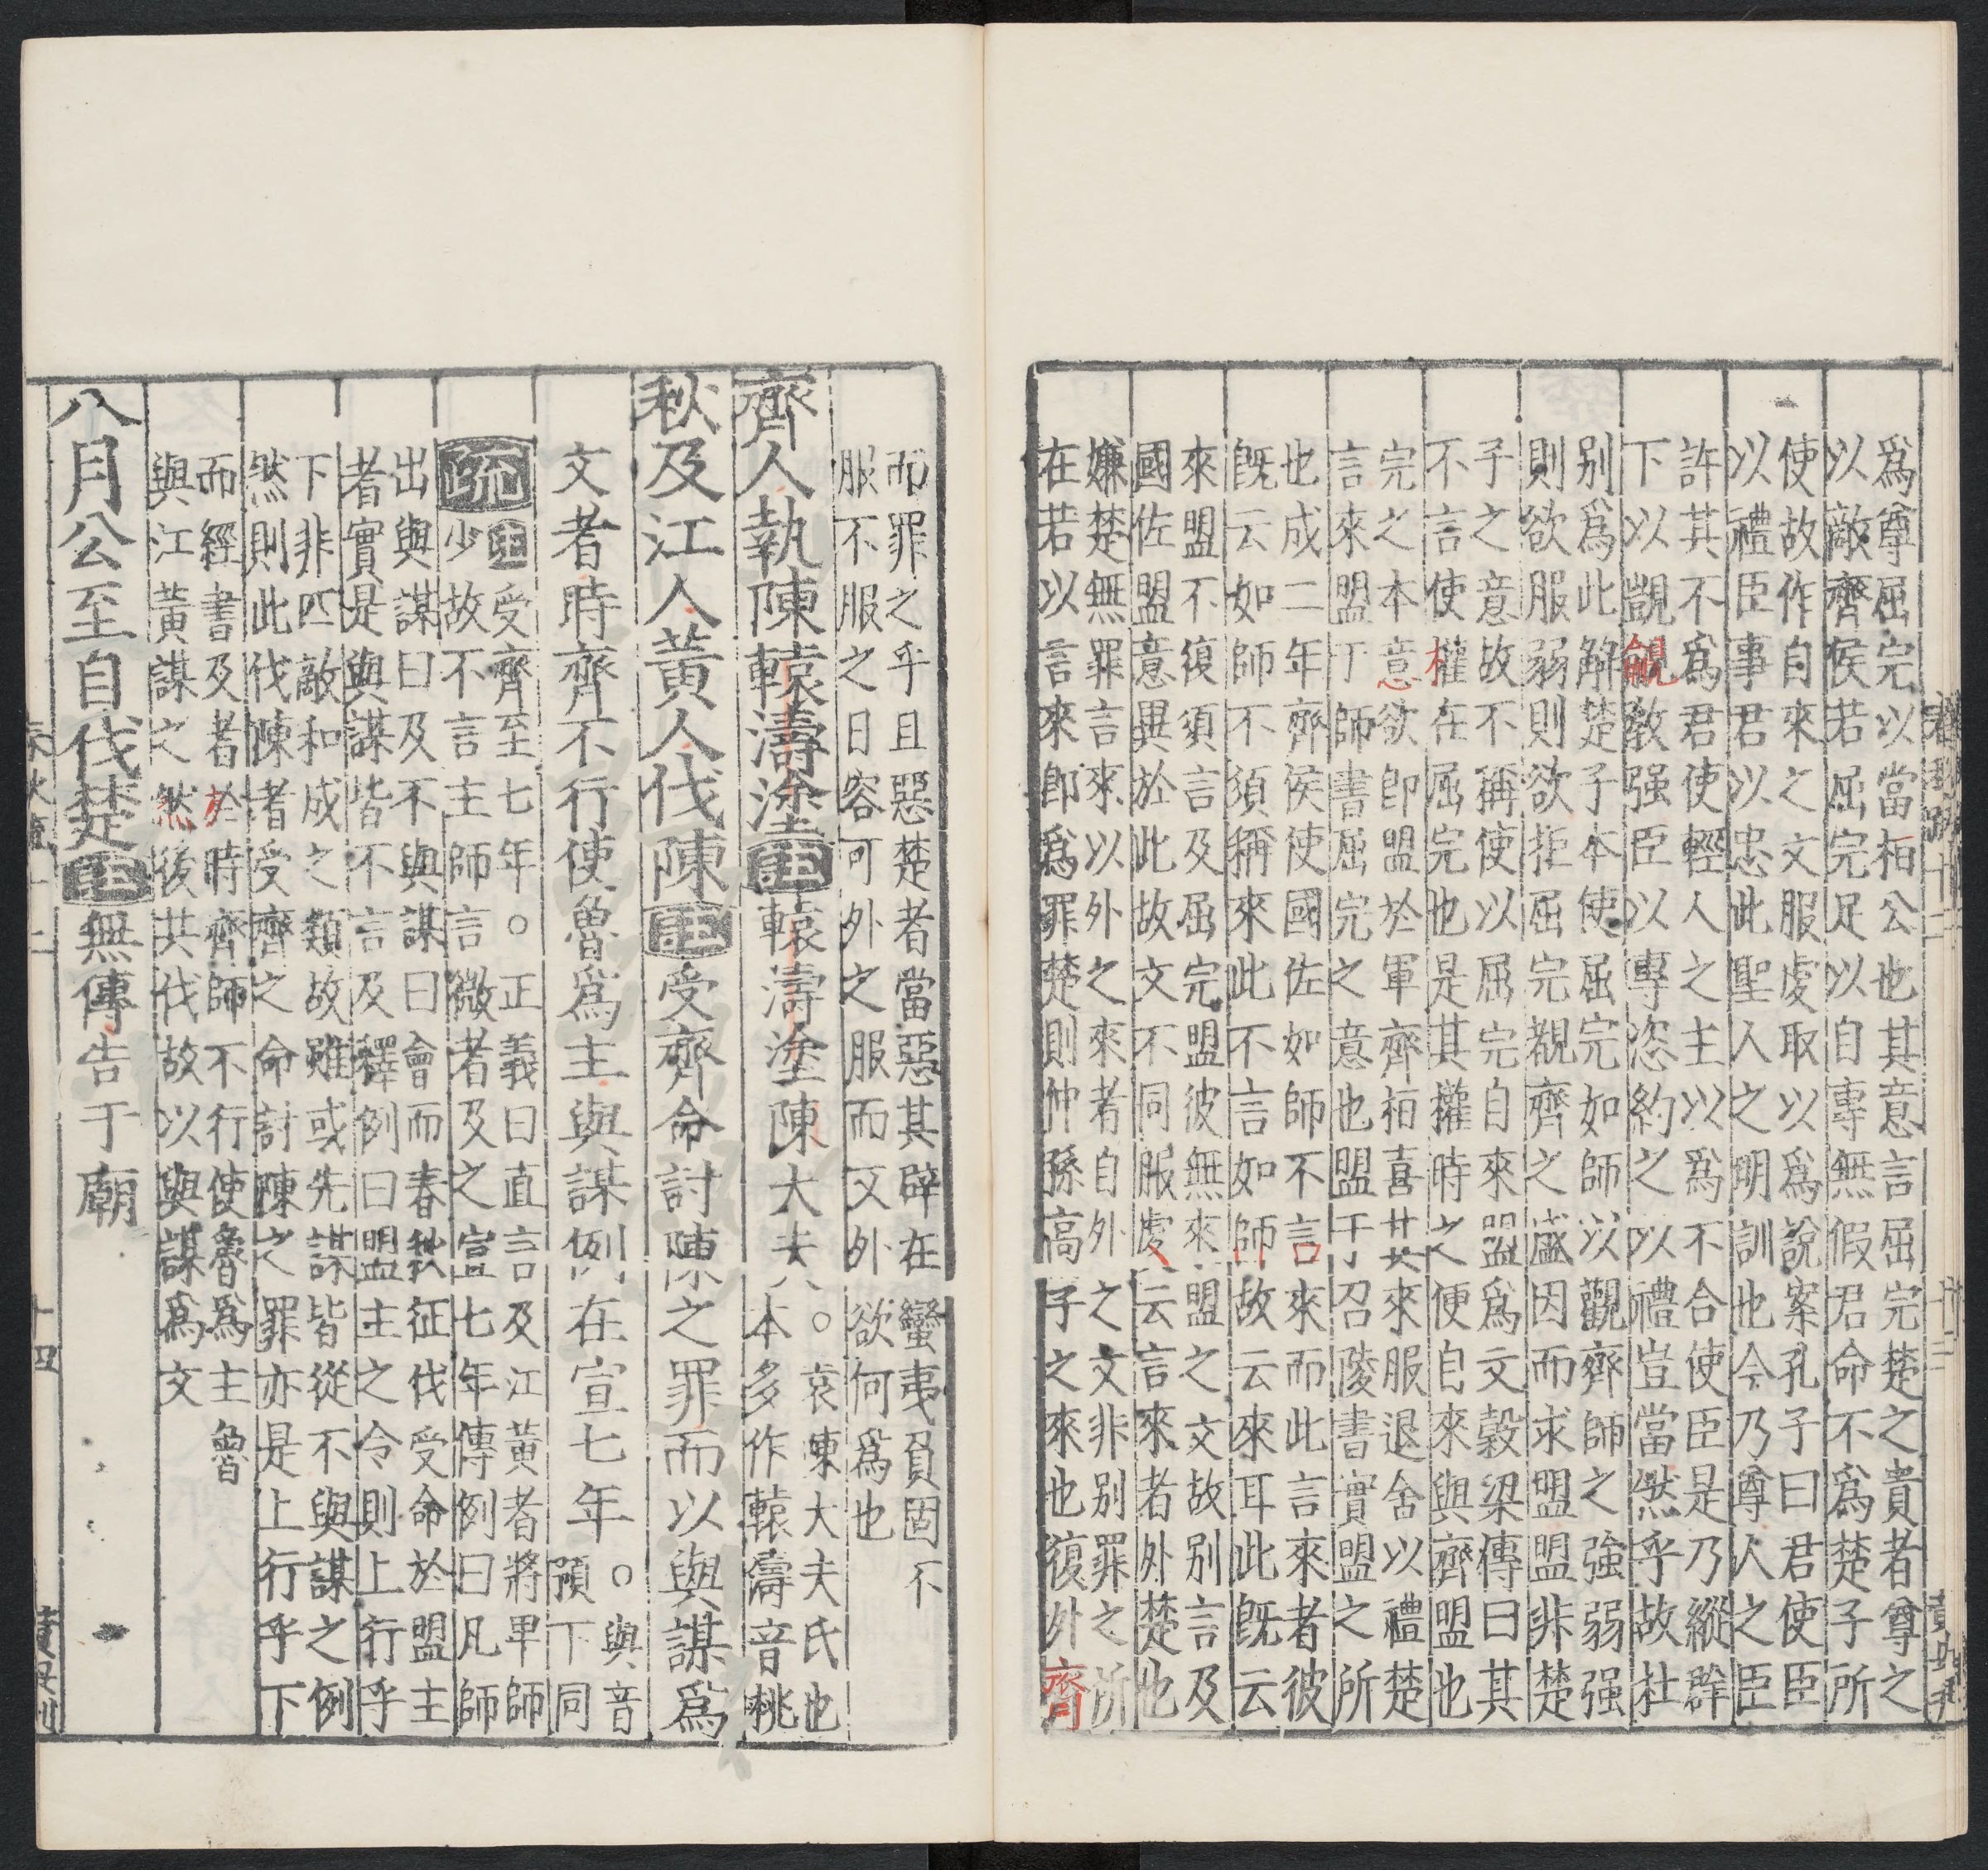 爲尊屈完以當桓公也其意言屈完楚之貴者尊之
以敵齊侯若屈完足以自專無假君命不爲楚子所
使故作自來之文服虔取以爲說案孔子曰君使臣
以禮臣事君以忠此聖人之明訓也今乃尊人之臣
許其不爲君使輕人之主以爲不合使臣是乃縱群
下以覬覦教强臣以專恣約之以禮豈當然乎故杜
别爲此解楚子本使屈完如師以觀齊師之強弱强
則欲服弱則欲拒屈完覩齊之盛因而求盟盟非楚
子之意故不稱使以屈完自來盟爲文穀梁傳曰其
不言使權在屈完也是其權時之便自來與齊盟也
完之本意欲即盟於軍齊桓喜其來服退舍以禮楚
言來盟于師書屈完之意也盟于召陵書實盟之所
也成二年齊侯使國佐如師不言來而此言來者彼
既云如師不須稱來此不言如師故云來耳此既云
來盟不復須言及屈完盟彼無來盟之文故别言及
國佐盟意異於此故文不同服虔云言來者外楚也
嫌楚無罪言來以外之來者自外之文非别罪之所
在若以言來即爲罪楚則仲孫高子之來也復外齊
春秋疏十二
十三
而罪之乎且惡楚者當惡其辟在蠻夷負固不
服不服之日容可外之服而又外欲何爲也
齊人執陳轅濤塗注轅濤塗陳大夫。袁陳大夫氏也
本多作轅濤音桃
秋及江人黃人伐陳注受齊命討陳之罪而以與謀爲
文者時齊不行使魯爲主與謀例在宣七年。與音
預下同
疏注受齊至七年。正義曰直言及江黃者將卑師
少故不言主師言微者及之宣七年傳例曰凡師
出與謀曰及不與謀曰會而春秋征伐受命於盟主
者實是與謀皆不言及釋例曰盟主之令則上行乎
下非匹敵和成之類故雖或先謀皆從不與謀之例
然則此伐陳者受齊之命討陳之罪亦是上行乎下
而經書及者於時齊師不行使魯爲主魯
與江黃謀之然後共伐故以與謀爲文
八月公至自伐楚注無傳告于廟
春秋疏十二
十四